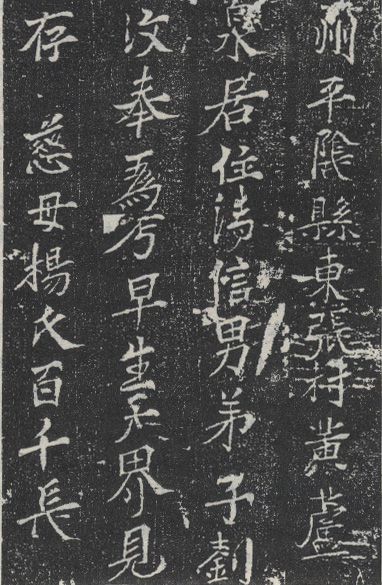 州平隂縣東張村黄蘆
泉居住清信男弟子劉
汶奉爲考早生天界見
存慈母楊氏百千長